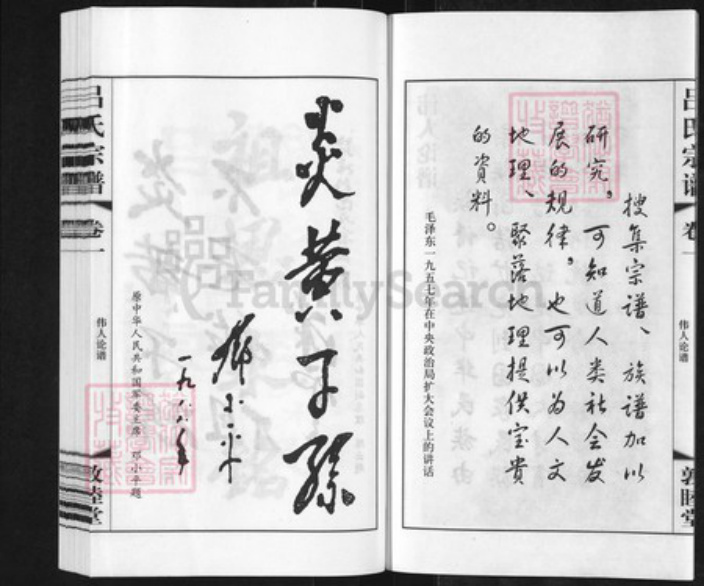 搜集宗谱、族谱加以
研究，可知道人类社会发
展的规律。也可以为人文
地理、聚落地理提供宝贵
的资料。
毛泽东一九五七年在中央政治局扩大会议上的讲话
吕氏宗谱
卷一
伟人论谱
敦睦堂
炎黄子孙
邓小平
一九八六年
原中华人民共和国军委主席：邓小平题
吕氏宗谱
卷一
伟人论谱
敦睦堂
FamilySearch